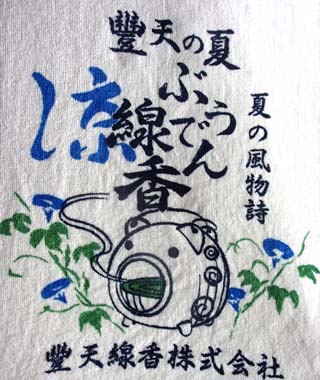 豐天の夏
涼
ぶうでん
線香
夏の風物詩
豐天線香株式会社